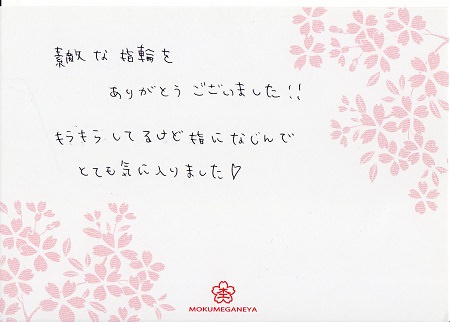 素敵な指輪を
ありがとうございました!!
キラキラしてるけど指になじんで
とても気に入りました♡
MOKUMEGANEYA